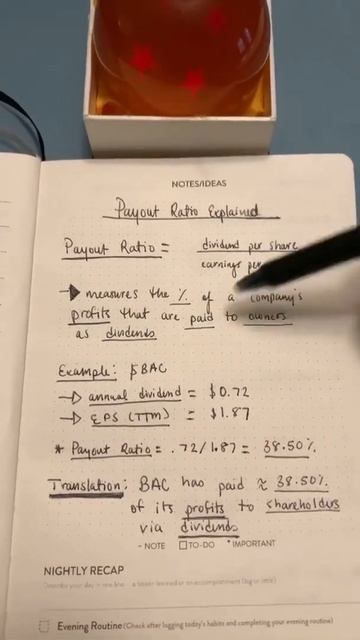 NOTES/IDEAS
Payout Ratio Explained
Payout Ratio = dividend per share
earnings per
→ measures the % of a company's
profits that are paid to owners
as dividends
Example: $BAC
→ annual dividend = $0.72
→ EPS (TTM) = $1.87
* Payout Ratio = .72/1.87 = 38.50%
Translation: BAC has paid ≈ 38.50%
of its profits to shareholders
via dividends
- NOTE □ TO-DO * IMPORTANT
NIGHTLY RECAP
Evening Routine (Check after logging today's habits and completing your evening routine)